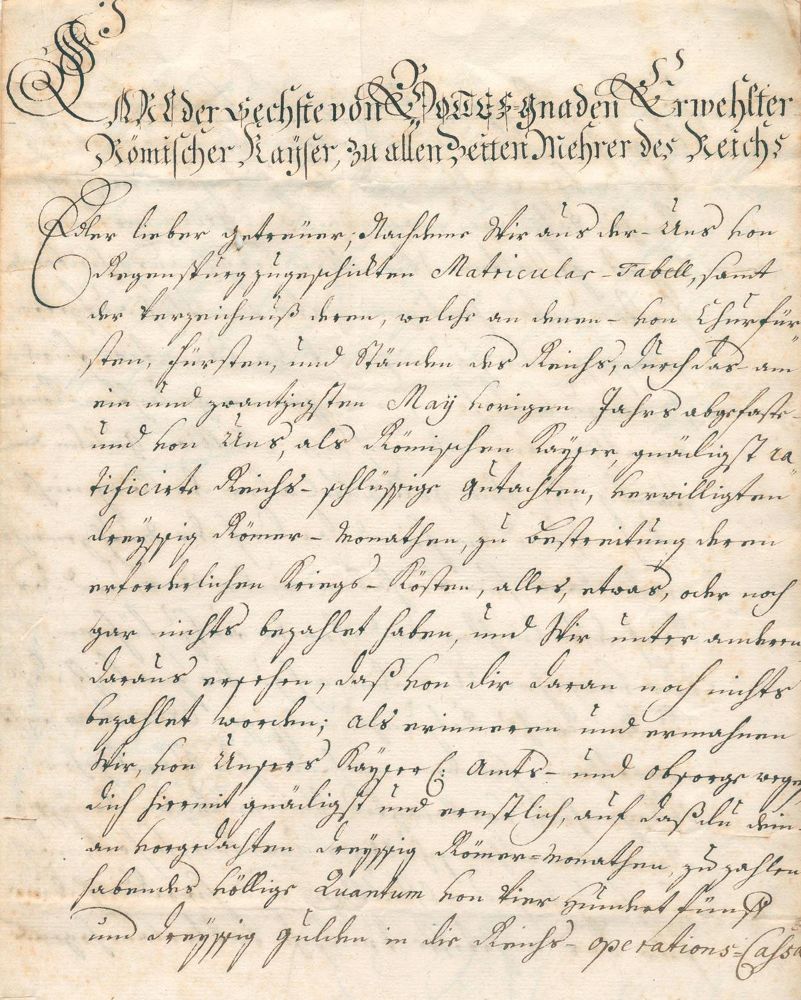 CARL der Sechste von GOTTES gnaden Erwehlter
Römischer Kayser, zu allen Zeiten Mehrer des Reichs
Edler lieber getreuer; Nachdeme Wir aus der- Uns von
Regenspurg zugeschickten Matricular-Tabell, samt
der Verzeichnuß deren, welche an denen- von Churfür"
sten, Fürsten, und Ständen des Reichs, durch das am
ein und zwantzigsten May vorigen Jahrs abgefaste-
und von Uns, als Römischen Kayser, gnädigst ra"
tificirte Reichs-schlüssige Gutachten, verwilligten
dreyssig Römer-Monathen, zu Bestreitung deren
erforderlichen Kriegs-Kösten, alles, etwas, oder noch
gar nichts bezahlet haben, und Wir unter anderen
daraus ersehen, daß von dir daran noch nichts
bezahlet worden; Als erinneren und ermahnen
Wir, von Unsers Kayserl: Amts- und obsorge wegen
dich hiermit gnädigst und ernstlich, auf daß du dein
an vorgedachten dreyssig Römer=Monathen zu zahlen
habendes völlige Quantum von Vier Hundert fünf
und dreyssig Gulden in die Reichs-operations=Cassa